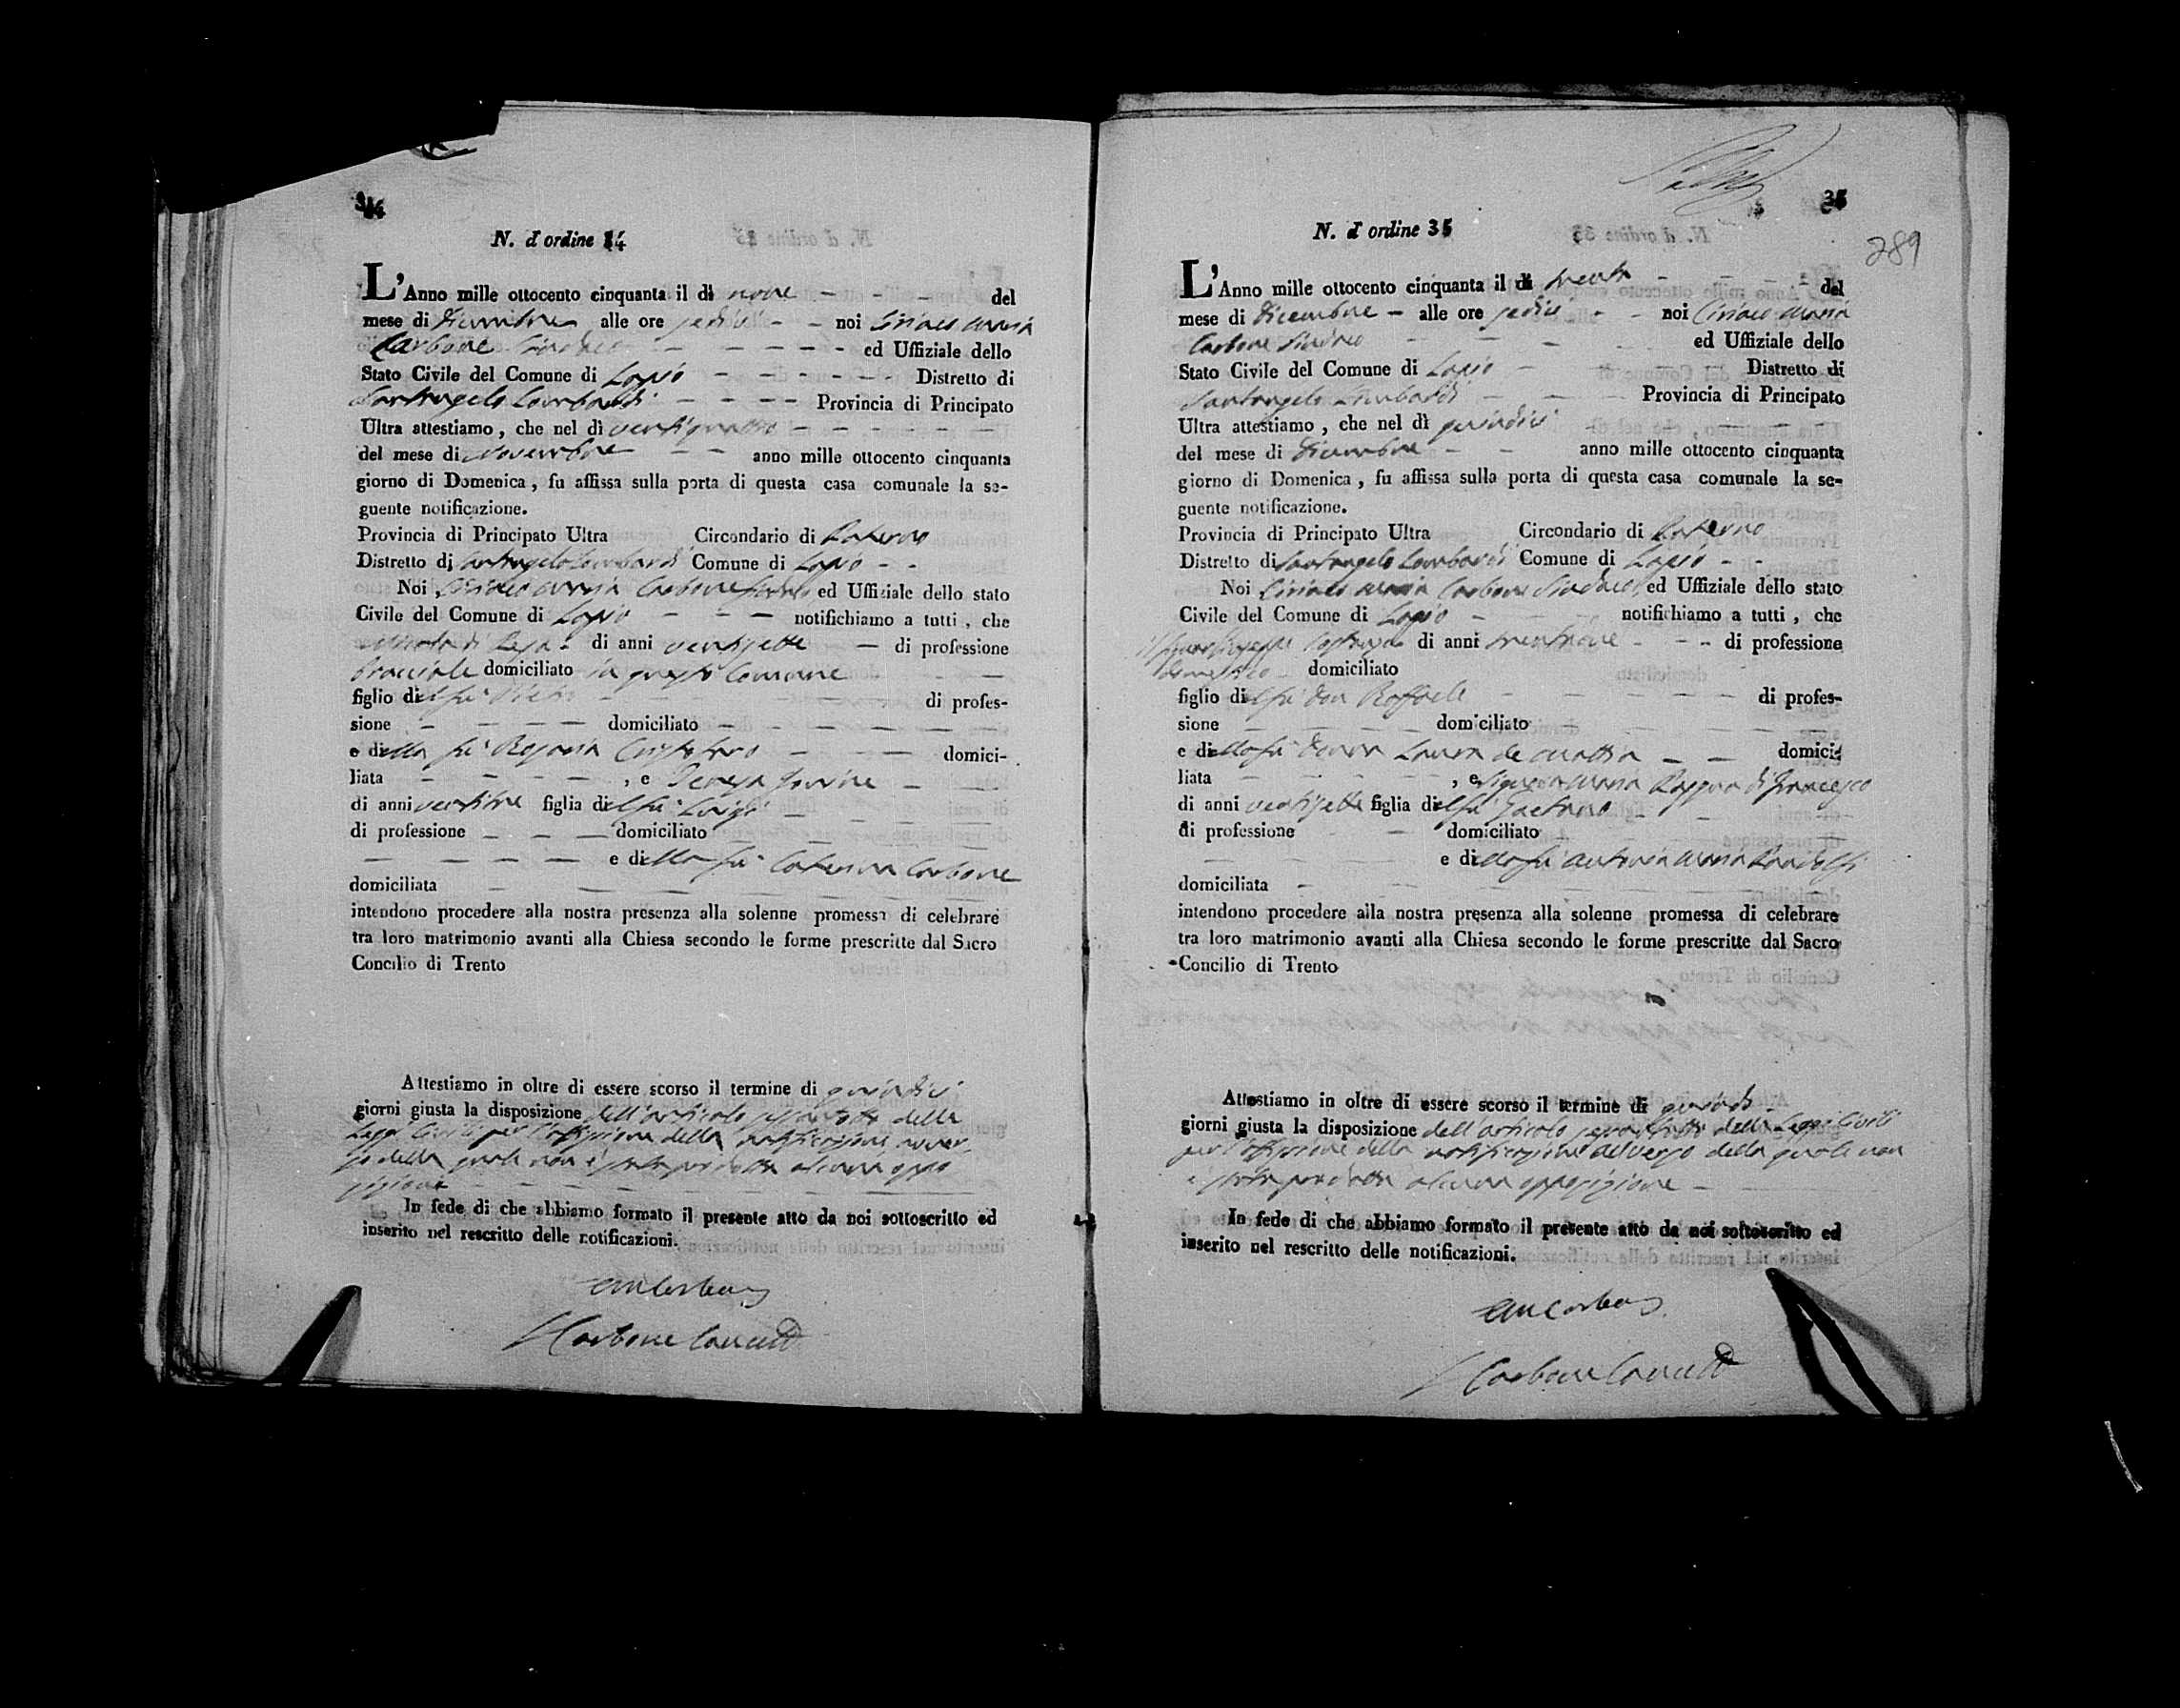 34
N. d'ordine 34
L'Anno mille ottocento cinquanta il dì nove - - - del
mese di Dicembre alle ore sedici - - noi Ciriaco Maria
Carbone Sindaco - - - - - ed Uffiziale dello
Stato Civile del Comune di Lapio - - - - - - Distretto di
Santangelo Lombardi - - - - Provincia di Principato
Ultra attestiamo, che nel dì ventiquattro - - - - - -
del mese di Novembre - - anno mille ottocento cinquanta
giorno di Domenica, fu affissa sulla porta di questa casa comunale la se-
guente notificazione.
Provincia di Principato Ultra Circondario di Paterno
Distretto di Santangelo Lombardi Comune di Lapio - -
Noi Ciriaco Maria Carbone Sindaco ed Uffiziale dello stato
Civile del Comune di Lapio - - - notifichiamo a tutti, che
di anni ventisette - di professione
bracciale domiciliato in questo Comune -
figlio di - - - di profes-
sione - - - - domiciliato - - - - - -
e di ella fu Rosaria - - - domici-
liata - - - -, e Teresa - -
di anni ventitre figlia di el fu Luigi - - - - -
di professione - - - domiciliato - - - -
- - - - - e di ella fu Caterina Carbone
domiciliata - - - - - -
intendono procedere alla nostra presenza alla solenne promessa di celebrare
tra loro matrimonio avanti alla Chiesa secondo le forme prescritte dal Sacro
Concilio di Trento
Attestiamo in oltre di essere scorso il termine di quindici
giorni giusta la disposizione dell'articolo sessantotto delle
Leggi Civili per l'affissione della notificazione, avver-
so della quale non è stata prodotta alcuna oppo
sizione - - - - - - -
In fede di che abbiamo formato il presente atto da noi sottoscritto ed
inserito nel rescritto delle notificazioni.
Carbone
35
289
N. d'ordine 35
L'Anno mille ottocento cinquanta il dì trenta - - - - del
mese di Dicembre - alle ore sedici - - noi Ciriaco Maria
Carbone Sindaco - - - ed Uffiziale dello
Stato Civile del Comune di Lapio - - - Distretto di
Santangelo Lombardi - - - Provincia di Principato
Ultra attestiamo, che nel dì quindici - - - -
del mese di Dicembre - - anno mille ottocento cinquanta
giorno di Domenica, fu affissa sulla porta di questa casa comunale la se-
guente notificazione.
Provincia di Principato Ultra Circondario di Paterno
Distretto di Santangelo Lombardi Comune di Lapio - -
Noi Ciriaco Maria Carbone Sindaco, ed Uffiziale dello stato
Civile del Comune di Lapio - - - notifichiamo a tutti, che
Giuseppe di anni trentanove - - - di professione
domiciliato
figlio di el fu Don Raffaele - - - - - di profes-
sione - - - - domiciliato - - - -
e di ella fu Donna Laura de Mattia - - domici-
liata - - - -, e Signora Maria di Francesco
di anni ventisette figlia di el fu Gaetano - -
di professione - - domiciliato
- - e di ella fu Antonia Maria
domiciliata - - - - - -
intendono procedere alla nostra presenza alla solenne promessa di celebrare
tra loro matrimonio avanti alla Chiesa secondo le forme prescritte dal Sacro
Concilio di Trento
Attestiamo in oltre di essere scorso il termine di quindici
giorni giusta la disposizione dell'articolo sessantotto delle Leggi Civili
per l'affissione della notificazione avverso della quale non
è stata prodotta alcuna opposizione -
In fede di che abbiamo formato il presente atto da noi sottoscritto ed
inserito nel rescritto delle notificazioni.
Carbone